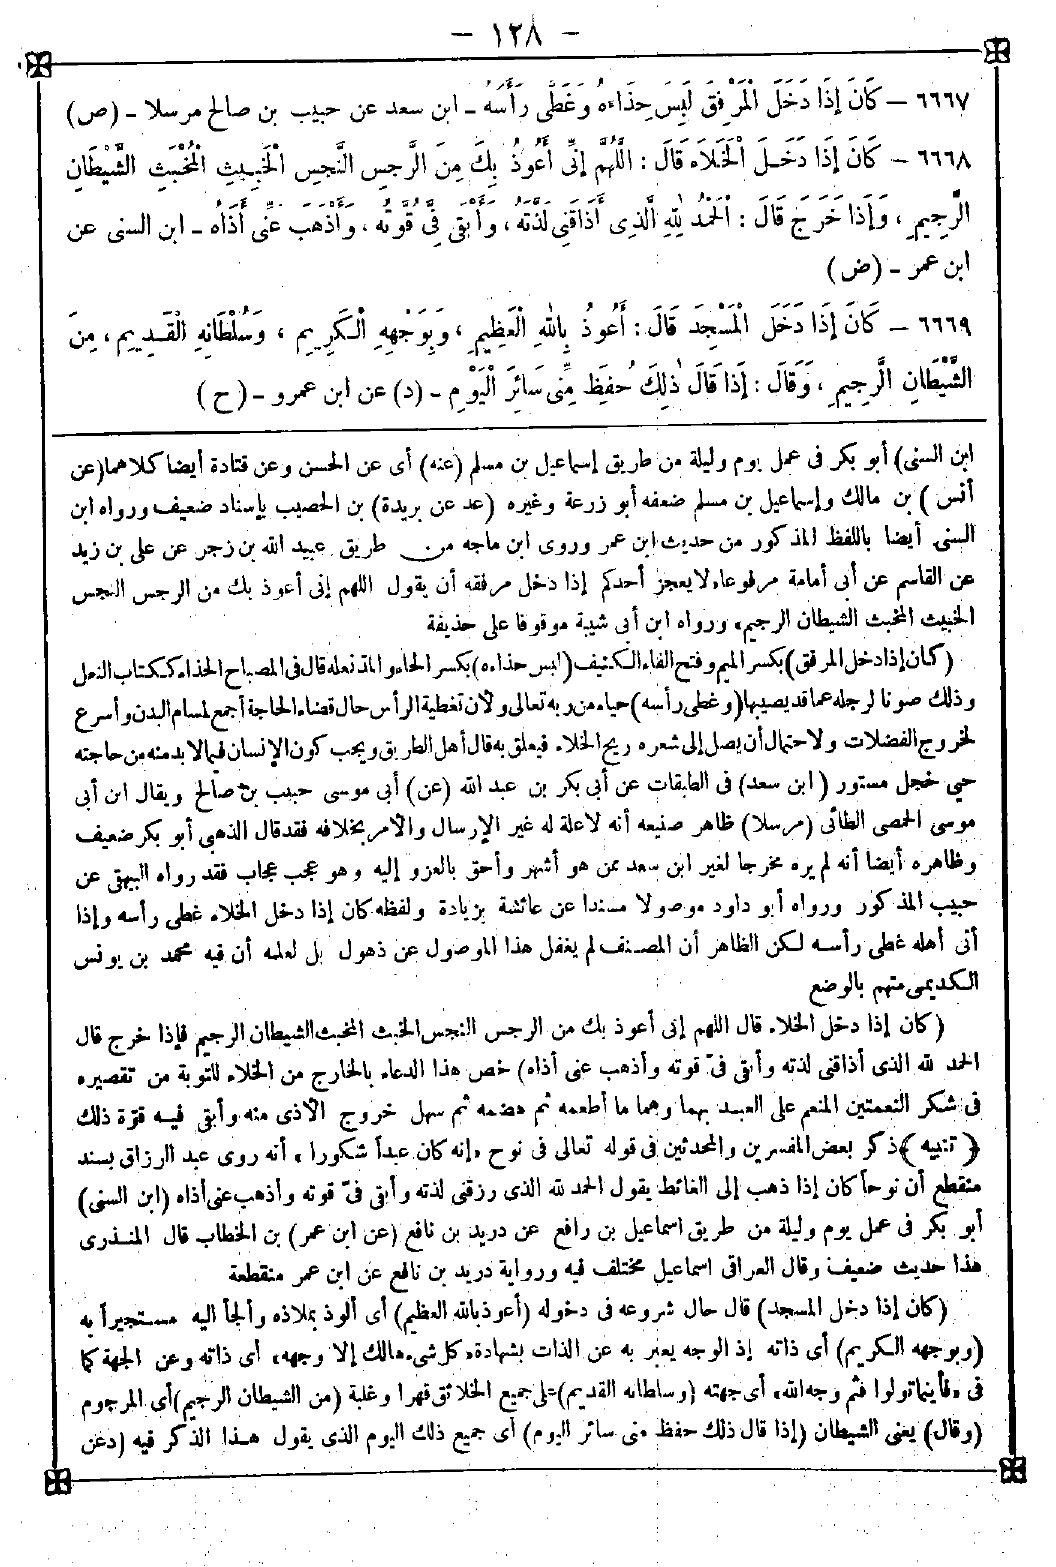 - ١٢٨ -
٦٦٦٧ - كَانَ إِذَا دَخَلَ الْمَرْفِقَ لَبِسَ حِذَاءَهُ وَغَطَّى رَأْسَهُ - ابن سعد عن حبيب بن صالح مرسلا - (ص)
٦٦٦٨ - كَانَ إِذَا دَخَلَ الْخَلَاءَ قَالَ : اللَّهُمَّ إِنِّي أَعُوذُ بِكَ مِنَ الرِّجِسِ النَّجِسِ الْخَبِيثِ الْمُخْبَثِ الشَّيْطَانِ
الرَّجِيمِ ، وَإِذَا خَرَجَ قَالَ : الْحَمْدُ لِلهِ الَّذِى أَذَاقَنِى لَذَّتَهُ ، وَأَبْقَى فِىَّ قُوَّتَهُ ، وَأَذْهَبَ عَنِّى أَذَاهُ - ابن السنى عن
ابن عمر - (ض)
٦٦٦٩ - كَانَ إِذَا دَخَلَ الْمَسْجِدَ قَالَ : أَعُوذُ بِاللهِ الْعَظِيمِ ، وَبِوَجْهِهِ الْكَرِيمِ ، وَسُلْطَانِهِ الْقَدِيمِ ، مِنَ
الشَّيْطَانِ الرَّجِيمِ ، وَقَالَ : إِذَا قَالَ ذٰلِكَ حُفِظَ مِنِّى سَائِرَ الْيَوْمِ - (د) عن ابن عمرو - (ح)
ابن السنى) أبو بكر فى عمل يوم وليلة من طريق إسماعيل بن مسلم (عنه) أى عن الحسن وعن قتادة أيضا كلاهما (عن
أنس) بن مالك وإسماعيل بن مسلم ضعفه أبو زرعة وغيره (عد عن بريدة) بن الحصيب بإسناد ضعيف ورواه ابن
السنى أيضا باللفظ المذكور من حديث ابن عمر وروى ابن ماجه من طريق عبيد الله بن زحر عن على بن زيد
عن القاسم عن أبى أمامة مرفوعا «لا يعجز أحدكم إذا دخل مرفقه أن يقول اللهم إنى أعوذ بك من الرجس النجس
الخبيث المخبث الشيطان الرجيم» ورواه ابن أبى شيبة موقوفا على حذيفة
(كان إذا دخل المرفق) بكسر الميم وفتح الفاء الكنيف (لبس حذاءه) بكسر الحاء والمد نعله قال فى المصباح الحذاء ككتاب النعل
وذلك صونا لرجله عما قد يصيبها (وغطى رأسه) حياء من ربه تعالى ولأن تغطية الرأس حال قضاء الحاجة أجمع لمسام البدن وأسرع
لخروج الفضلات ولاحتمال أن يصل إلى شعره ريح الخلاء فيعلق به قال أهل الطريق ويجب كون الإنسان فيما لا بد منه من حاجته
حيى خجل مستور (ابن سعد) فى الطبقات عن أبى بكر بن عبد الله (عن) أبى موسى حبيب بن صالح ويقال ابن أبى
موسى الحمصى الطائى (مرسلا) ظاهر صنيعه أنه لا علة له غير الإرسال والأمر بخلافه فقد قال الذهبى أبو بكر ضعيف
وظاهره أيضا أنه لم يره مخرجا لغير ابن سعد ممن هو أشهر وأحق بالعزو إليه وهو عجب عجاب فقد رواه البيهقى عن
حبيب المذكور ورواه أبو داود موصولا مسندا عن عائشة بزيادة ولفظه كان إذا دخل الخلاء غطى رأسه وإذا
أتى أهله غطى رأسه لكن الظاهر أن المصنف لم يغفل هذا الموصول عن ذهول بل لعلمه أن فيه محمد بن يونس
الكديمى متهم بالوضع
(كان إذا دخل الخلاء قال اللهم إنى أعوذ بك من الرجس النجس الخبث المخبث الشيطان الرجيم فإذا خرج قال
الحمد لله الذى أذاقنى لذته وأبقى فىّ قوته وأذهب عنى أذاه) خص هذا الدعاء بالخارج من الخلاء للتوبة من تقصيره
فى شكر النعمتين المنعم على العبد بهما وهما ما أطعمه ثم هضمه ثم سهل خروج الأذى منه وأبقى فيه قوّة ذلك
﴿ تنبيه ﴾ ذكر بعض المفسرين والمحدثين فى قوله تعالى فى نوح «إنه كان عبداً شكورا» أنه روى عبد الرزاق بسند
منقطع أن نوحاً كان إذا ذهب إلى الغائط يقول الحمد لله الذى رزقنى لذته وأبقى فىّ قوته وأذهب عنى أذاه (ابن السنى)
أبو بكر فى عمل يوم وليلة من طريق اسماعيل بن رافع عن دريد بن نافع (عن ابن عمر) بن الخطاب قال المنذرى
هذا حديث ضعيف وقال العراقى اسماعيل مختلف فيه ورواية دريد بن نافع عن ابن عمر منقطعة
(كان إذا دخل المسجد) قال حال شروعه فى دخوله (أعوذ بالله العظيم) أى ألوذ بملاذه وألجأ اليه مستجيراً به
(وبوجهه الكريم) أى ذاته إذ الوجه يعبر به عن الذات بشهادة «كل شىء هالك إلا وجهه» أى ذاته وعن الجهة كما
فى «فأينما تولوا فثم وجه الله» أى جهته (وسلطانه القديم) على جميع الخلائق قهرا وغلبة (من الشيطان الرجيم) أى المرجوم
(وقال) يعنى الشيطان (إذا قال ذلك حفظ منى سائر اليوم) أى جميع ذلك اليوم الذى يقول هذا الذكر فيه (د عن